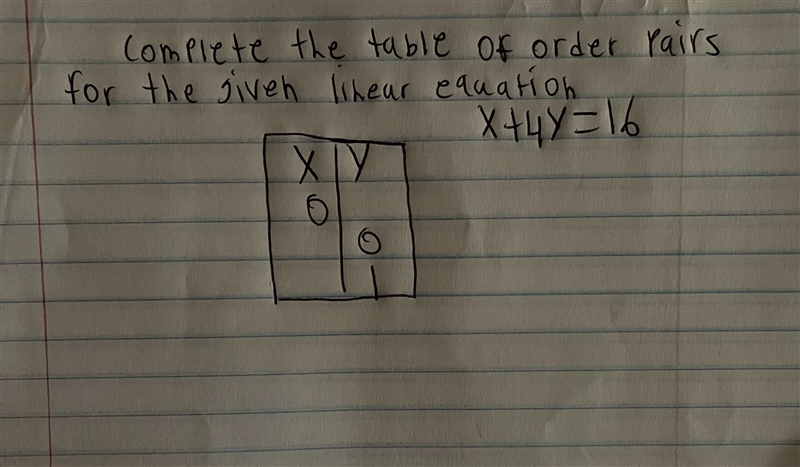 Complete the table of order Pairs
for the given linear equation
X+4Y=16
X Y
0
0
1